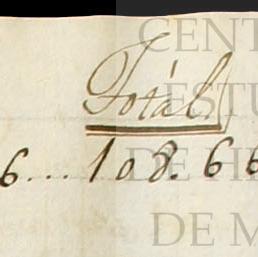 Totál.
6... 108. 66
CENT
ESTU
DE HI
DE M